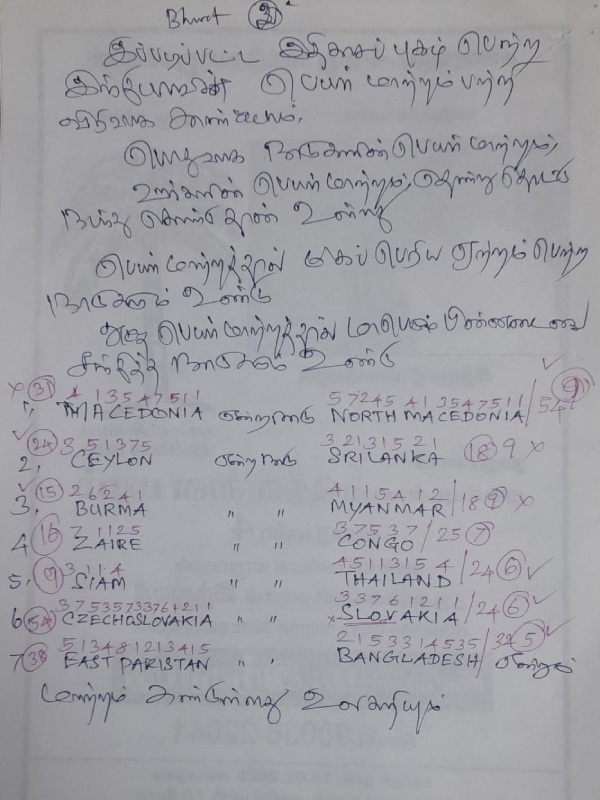 Bharat ②
இப்படிப்பட்ட இதிகாசப் புகழ் பெற்ற
இந்தியாவின் பெயர் மாற்றம் பற்றி
விரிவாக காண்போம்.
பொதுவாக நாடுகளின் பெயர் மாற்றம்,
ஊர்களின் பெயர் மாற்றம், தொன்று தொட்டு
நடந்து கொண்டு தான் உள்ளது
பெயர் மாற்றத்தால் மிகப் பெரிய ஏற்றம் பெற்ற
நாடுகளும் உண்டு
அதே பெயர் மாற்றத்தால் மாபெரும் பின்னடைவை
சந்தித்த நாடுகளும் உண்டு
x 31 4 1 3 5 4 7 5 1 1 5 7 2 4 5 4 1 3 5 4 7 5 1 1 ✓
1, MACEDONIA என்ற நாடு NORTH MACEDONIA / 54 9
✓ 24 3 5 1 3 7 5 3 2 1 3 1 5 2 1
2, CEYLON என்ற நாடு SRILANKA 18 9 x
✓ 15 2 6 2 4 1 4 1 1 5 4 1 2
3, BURMA " " MYANMAR / 18 9 x
16 7 1 1 2 5 3 7 5 3 7
4 ZAIRE " " CONGO / 25 7
9 3 1 1 4 4 5 1 1 3 1 5 4
5, SIAM " " THAILAND / 24 6 ✓
54 3 7 5 3 5 7 3 3 7 6 1 2 1 1 3 3 7 6 1 2 1 1
6 CZECHOSLOVAKIA " " x SLOVAKIA / 24 6 ✓
38 5 1 3 4 8 1 2 1 3 4 1 5 2 1 5 3 3 1 4 5 3 5
7 EAST PAKISTAN " " BANGLADESH / 32 5 ✓ என்றும்
மாற்றம் கண்டுள்ளது உலகறியும்